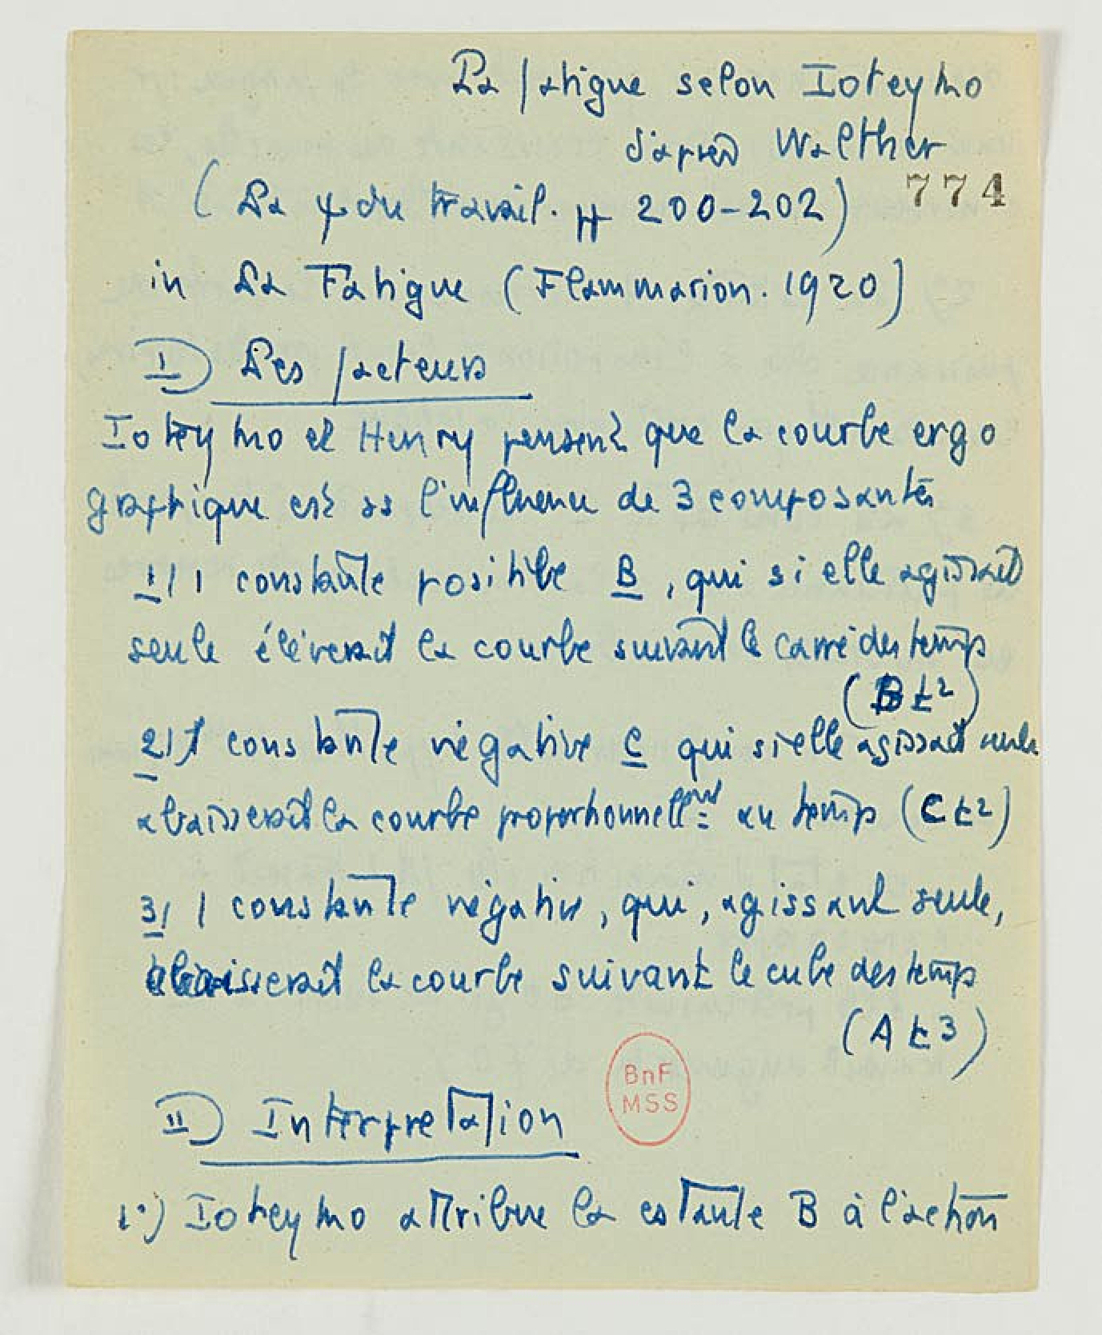 La fatigue selon Ioteyko
d'après Walther
(La ψ du travail. pp 200-202) 774
in La Fatigue (Flammarion. 1920)
I) Les facteurs
Ioteyko et Henry pensent que la courbe ergo
graphique est ss l'influence de 3 composantes
1/ 1 constante positive B, qui si elle agissait
seule élèverait la courbe suivant le carré des temps
(Bt2)
2/ 1 constante négative C qui si elle agissait seule
abaisserait la courbe proportionnellemt au temps (Ct2)
3/ 1 constante négative, qui, agissant seule,
abaisserait la courbe suivant le cube des temps
(At3)
BnF
MSS
II) Interprétation
1°) Ioteyko attribue la cstante B à l'action